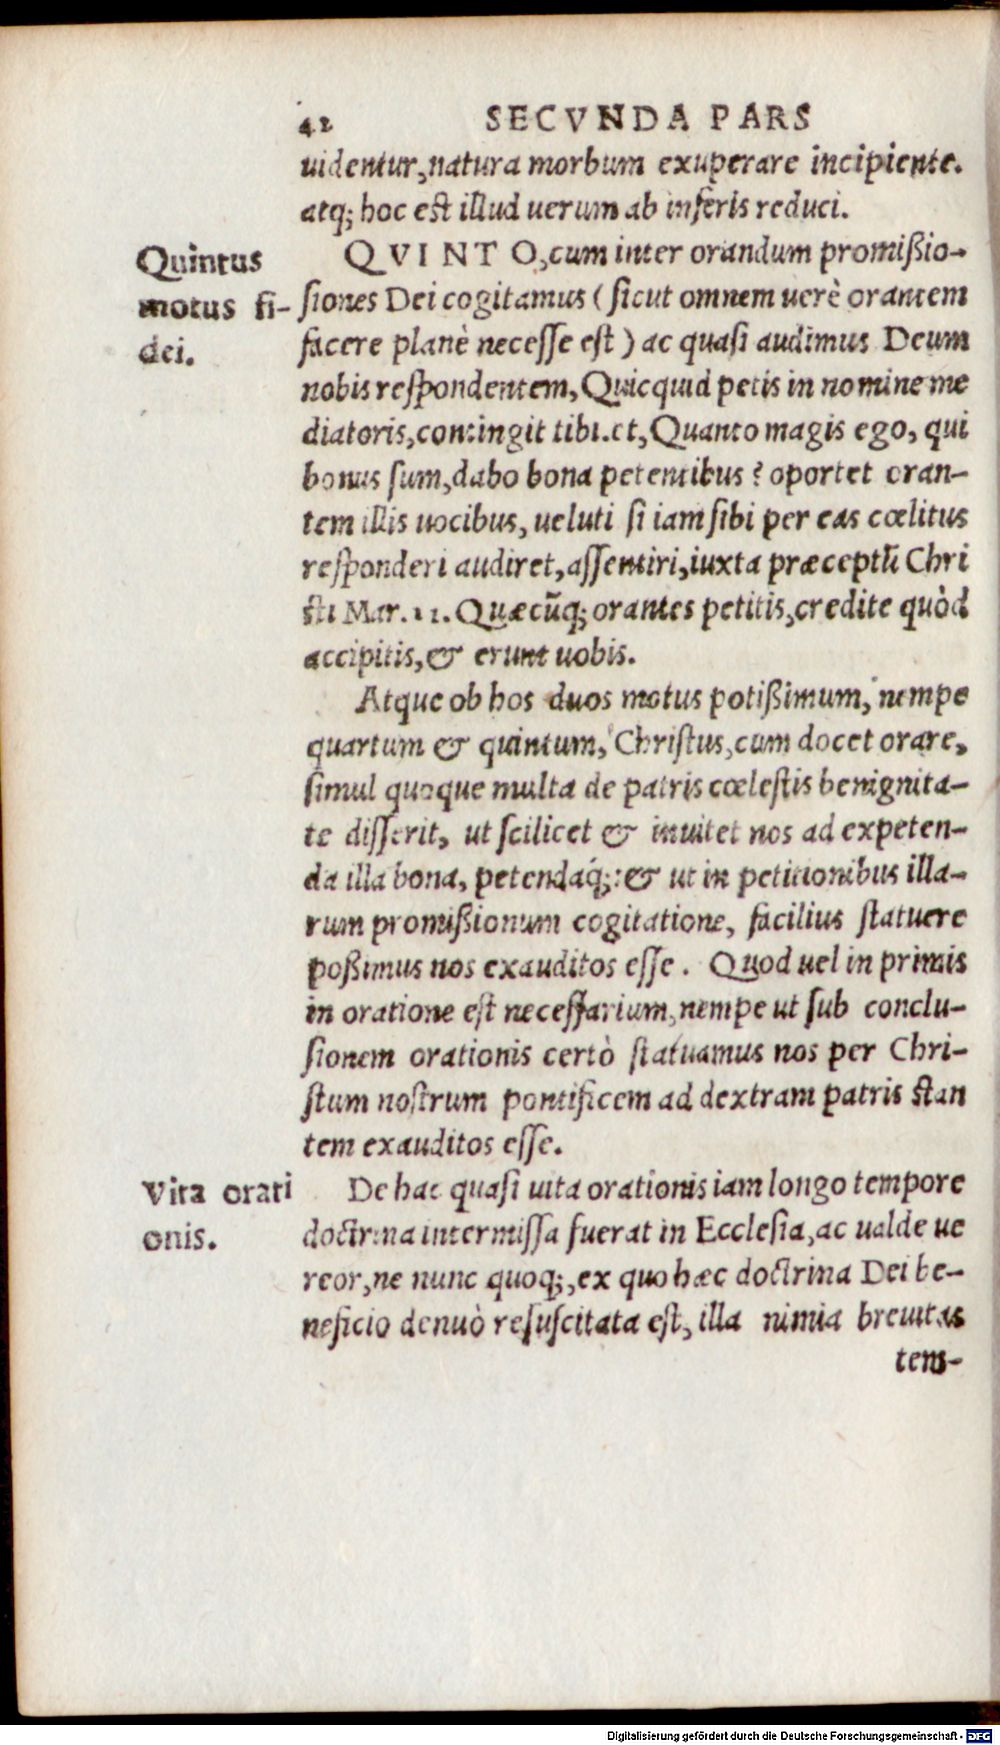 42 SECVNDA PARS
uidentur, natura morbum exuperare incipiente.
atq; hoc est illud uerum ab inferis reduci.
Quintus
motus fi-
dei.
QVINTO, cum inter orandum promißio-
siones Dei cogitamus (sicut omnem uerè orantem
facere planè necesse est) ac quasi audimus Deum
nobis respondentem, Quicquid petis in nomine me
diatoris, contingit tibi. et, Quanto magis ego, qui
bonus sum, dabo bona petentibus? oportet oran-
tem illis uocibus, ueluti si iam sibi per eas cœlitus
responderi audiret, assentiri, iuxta præceptũ Chri
sti Mar. 11. Quæcũq; orantes petitis, credite quòd
accipitis, & erunt uobis.
Atque ob hos duos motus potißimum, nempe
quartum & quintum, Christus, cum docet orare,
simul quoque multa de patris cœlestis benignita-
te disserit, ut scilicet & inuitet nos ad expeten-
da illa bona, petendaq́;: & ut in petitionibus illa-
rum promißionum cogitatione, facilius statuere
poßimus nos exauditos esse. Quod uel in primis
in oratione est necessarium, nempe ut sub conclu-
sionem orationis certò statuamus nos per Chri-
stum nostrum pontificem ad dextram patris stan
tem exauditos esse.
Vita orati
onis.
De hac quasi uita orationis iam longo tempore
doctrina intermissa fuerat in Ecclesia, ac ualde ue
reor, ne nunc quoq;, ex quo hæc doctrina Dei be-
neficio denuò resuscitata est, illa nimia breuitas
tem-
Digitalisierung gefördert durch die Deutsche Forschungsgemeinschaft - DFG